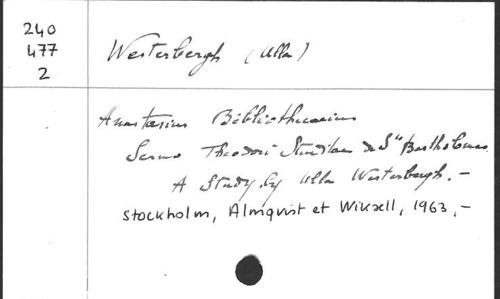 240
477
2
Westerbergh (Ulla)
Anastasius Bibliothecarius
Sermo Theodori Studitae de Sto Bartholomeo
A Study by Ulla Westerbergh. –
Stockholm, Almqvist et Wiksell, 1963, –